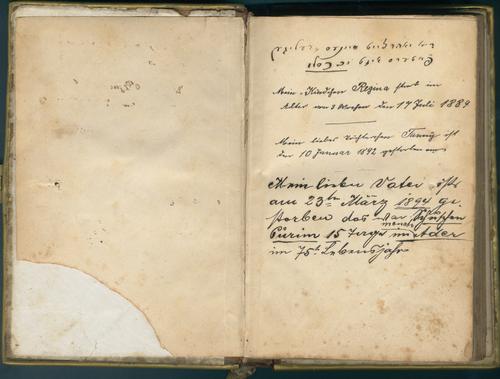 די יאהרצייט מיינעס זעליגען
Mein Kindchen Regina starb im
Alter von 3 Wochen den 17 Juli 1889
Mein liebes Töchterchen Fanny ist
den 10 Januar 1892 gestorben
Mein lieber Vater ist
am 23ten März 1894 ge-
storben das war Schuschan
Purim 15 Tage im Ader
im 75t Lebensjahr